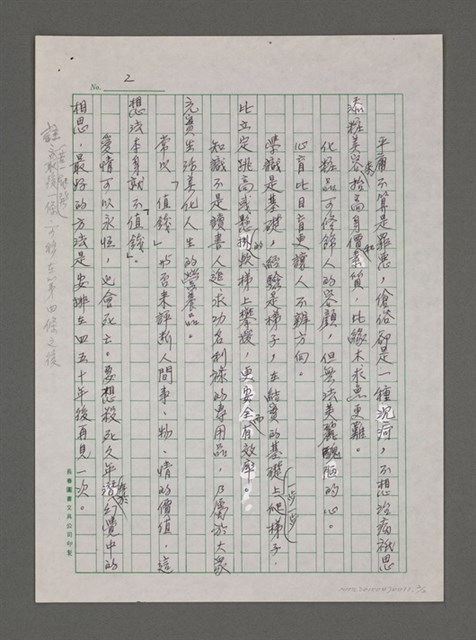 No. 2
平庸不算是罪惡，傖俗卻是一種沉疴，不想治病祇思
添粧美容來抬高身價和素質，比緣木求魚更難。
化粧品可修飾人的容顏，但無法美麗醜陋的心。
心盲比目盲更讓人不辨方向。
學識是基礎，經驗是梯子，在結實的基礎上一步一步爬梯子，
比立定跳高或懸掛的軟梯上攀援，更安全而有效率。
知識不是讀書人追求功名利祿的專用品，乃屬於大眾
充實生活美化人生的營養品。
常以「值錢」與否來評斷人間事、物、情的價值，這
想法本身就不「值錢」。
愛情可以永恆，也會死亡。要想殺死久年潛於幻覺中的
相思，最好的方法是安排在四五十年後再見一次。
長春圖書文具公司印製